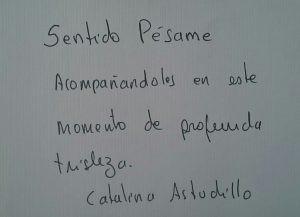 Sentido Pésame
Acompañandoles en este
momento de profunda
tristeza.
Catalina Astudillo